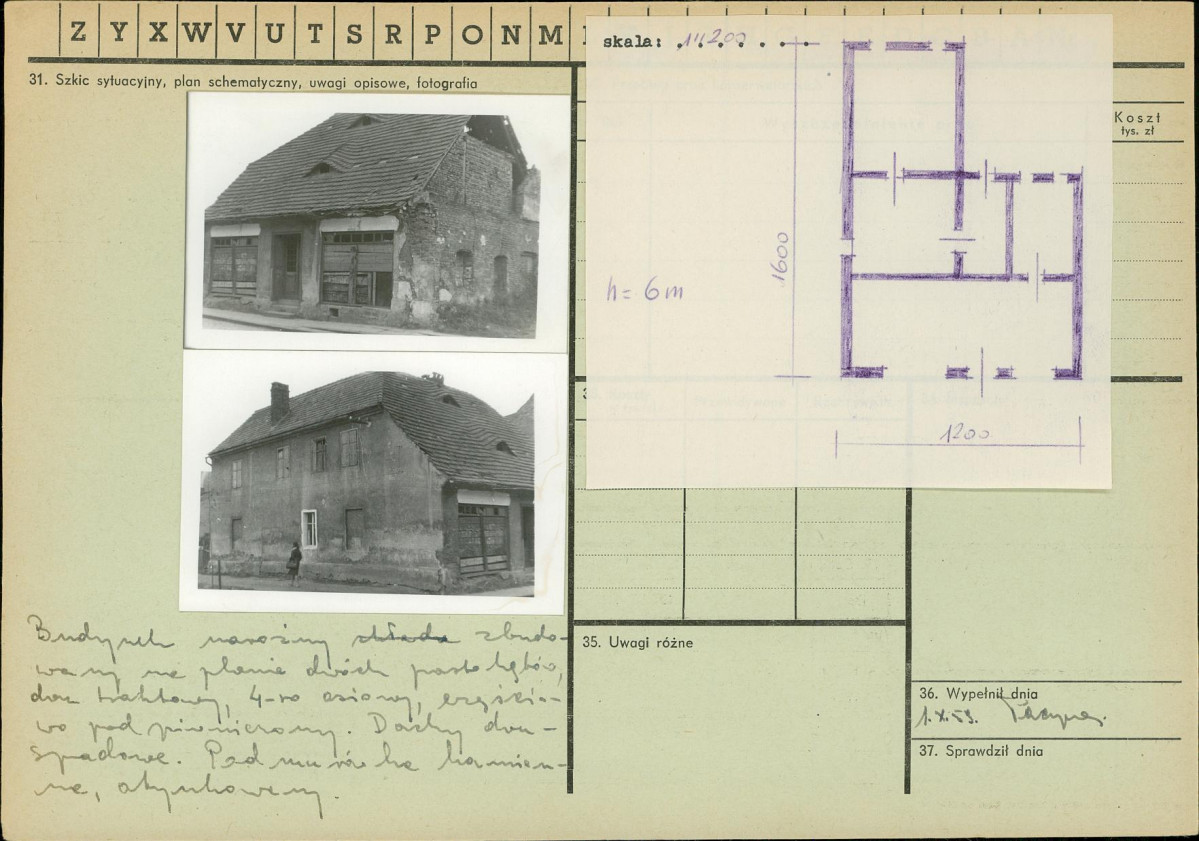 Z Y X W V U T S R P O N M
31. Szkic sytuacyjny, plan schematyczny, uwagi opisowe, fotografia
skala: 1:200
h = 6 m
1600
1200
Koszt
tys. zł
Budynek narożny składa zbudo-
wany na planie dwóch prostokątów,
dwu traktowy, 4-ro osiowy, częścio-
wo podpiwniczony. Dachy dwu-
spadowe. Podmurówka kamien-
na, otynkowany.
35. Uwagi różne
36. Wypełnił dnia
1.X.59.
37. Sprawdził dnia